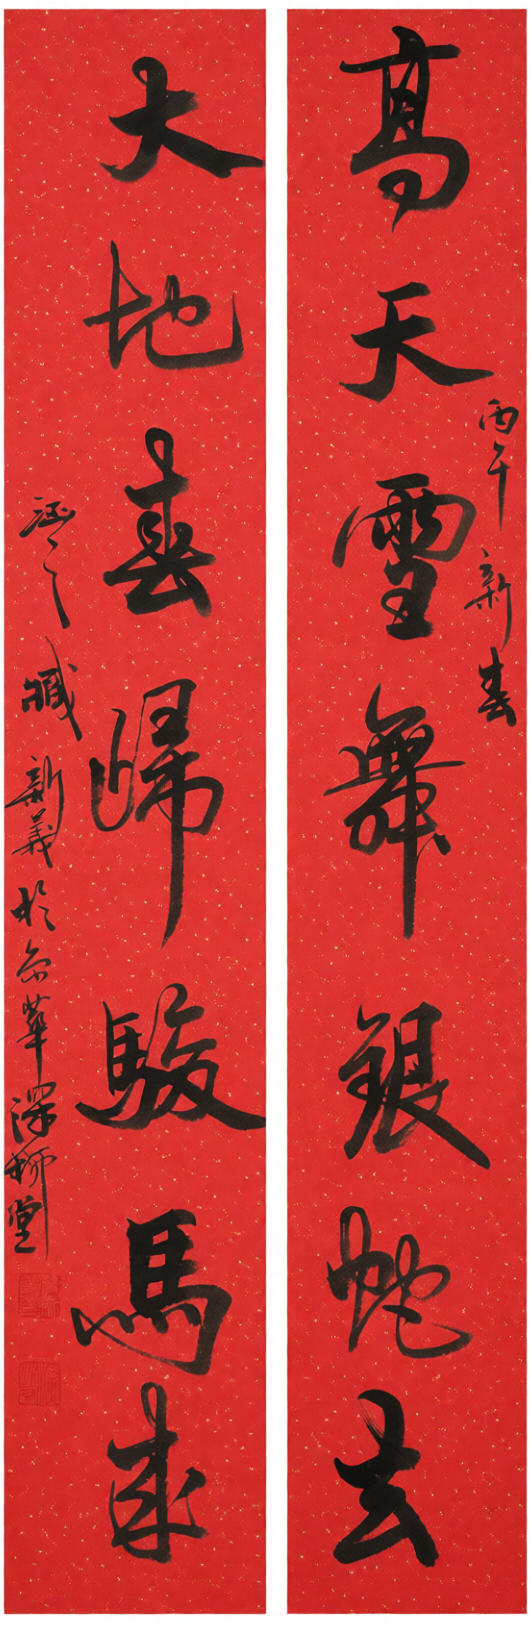 高天雪舞銀蛇去
丙午新春
大地春歸駿馬來
新義於京華深柳堂